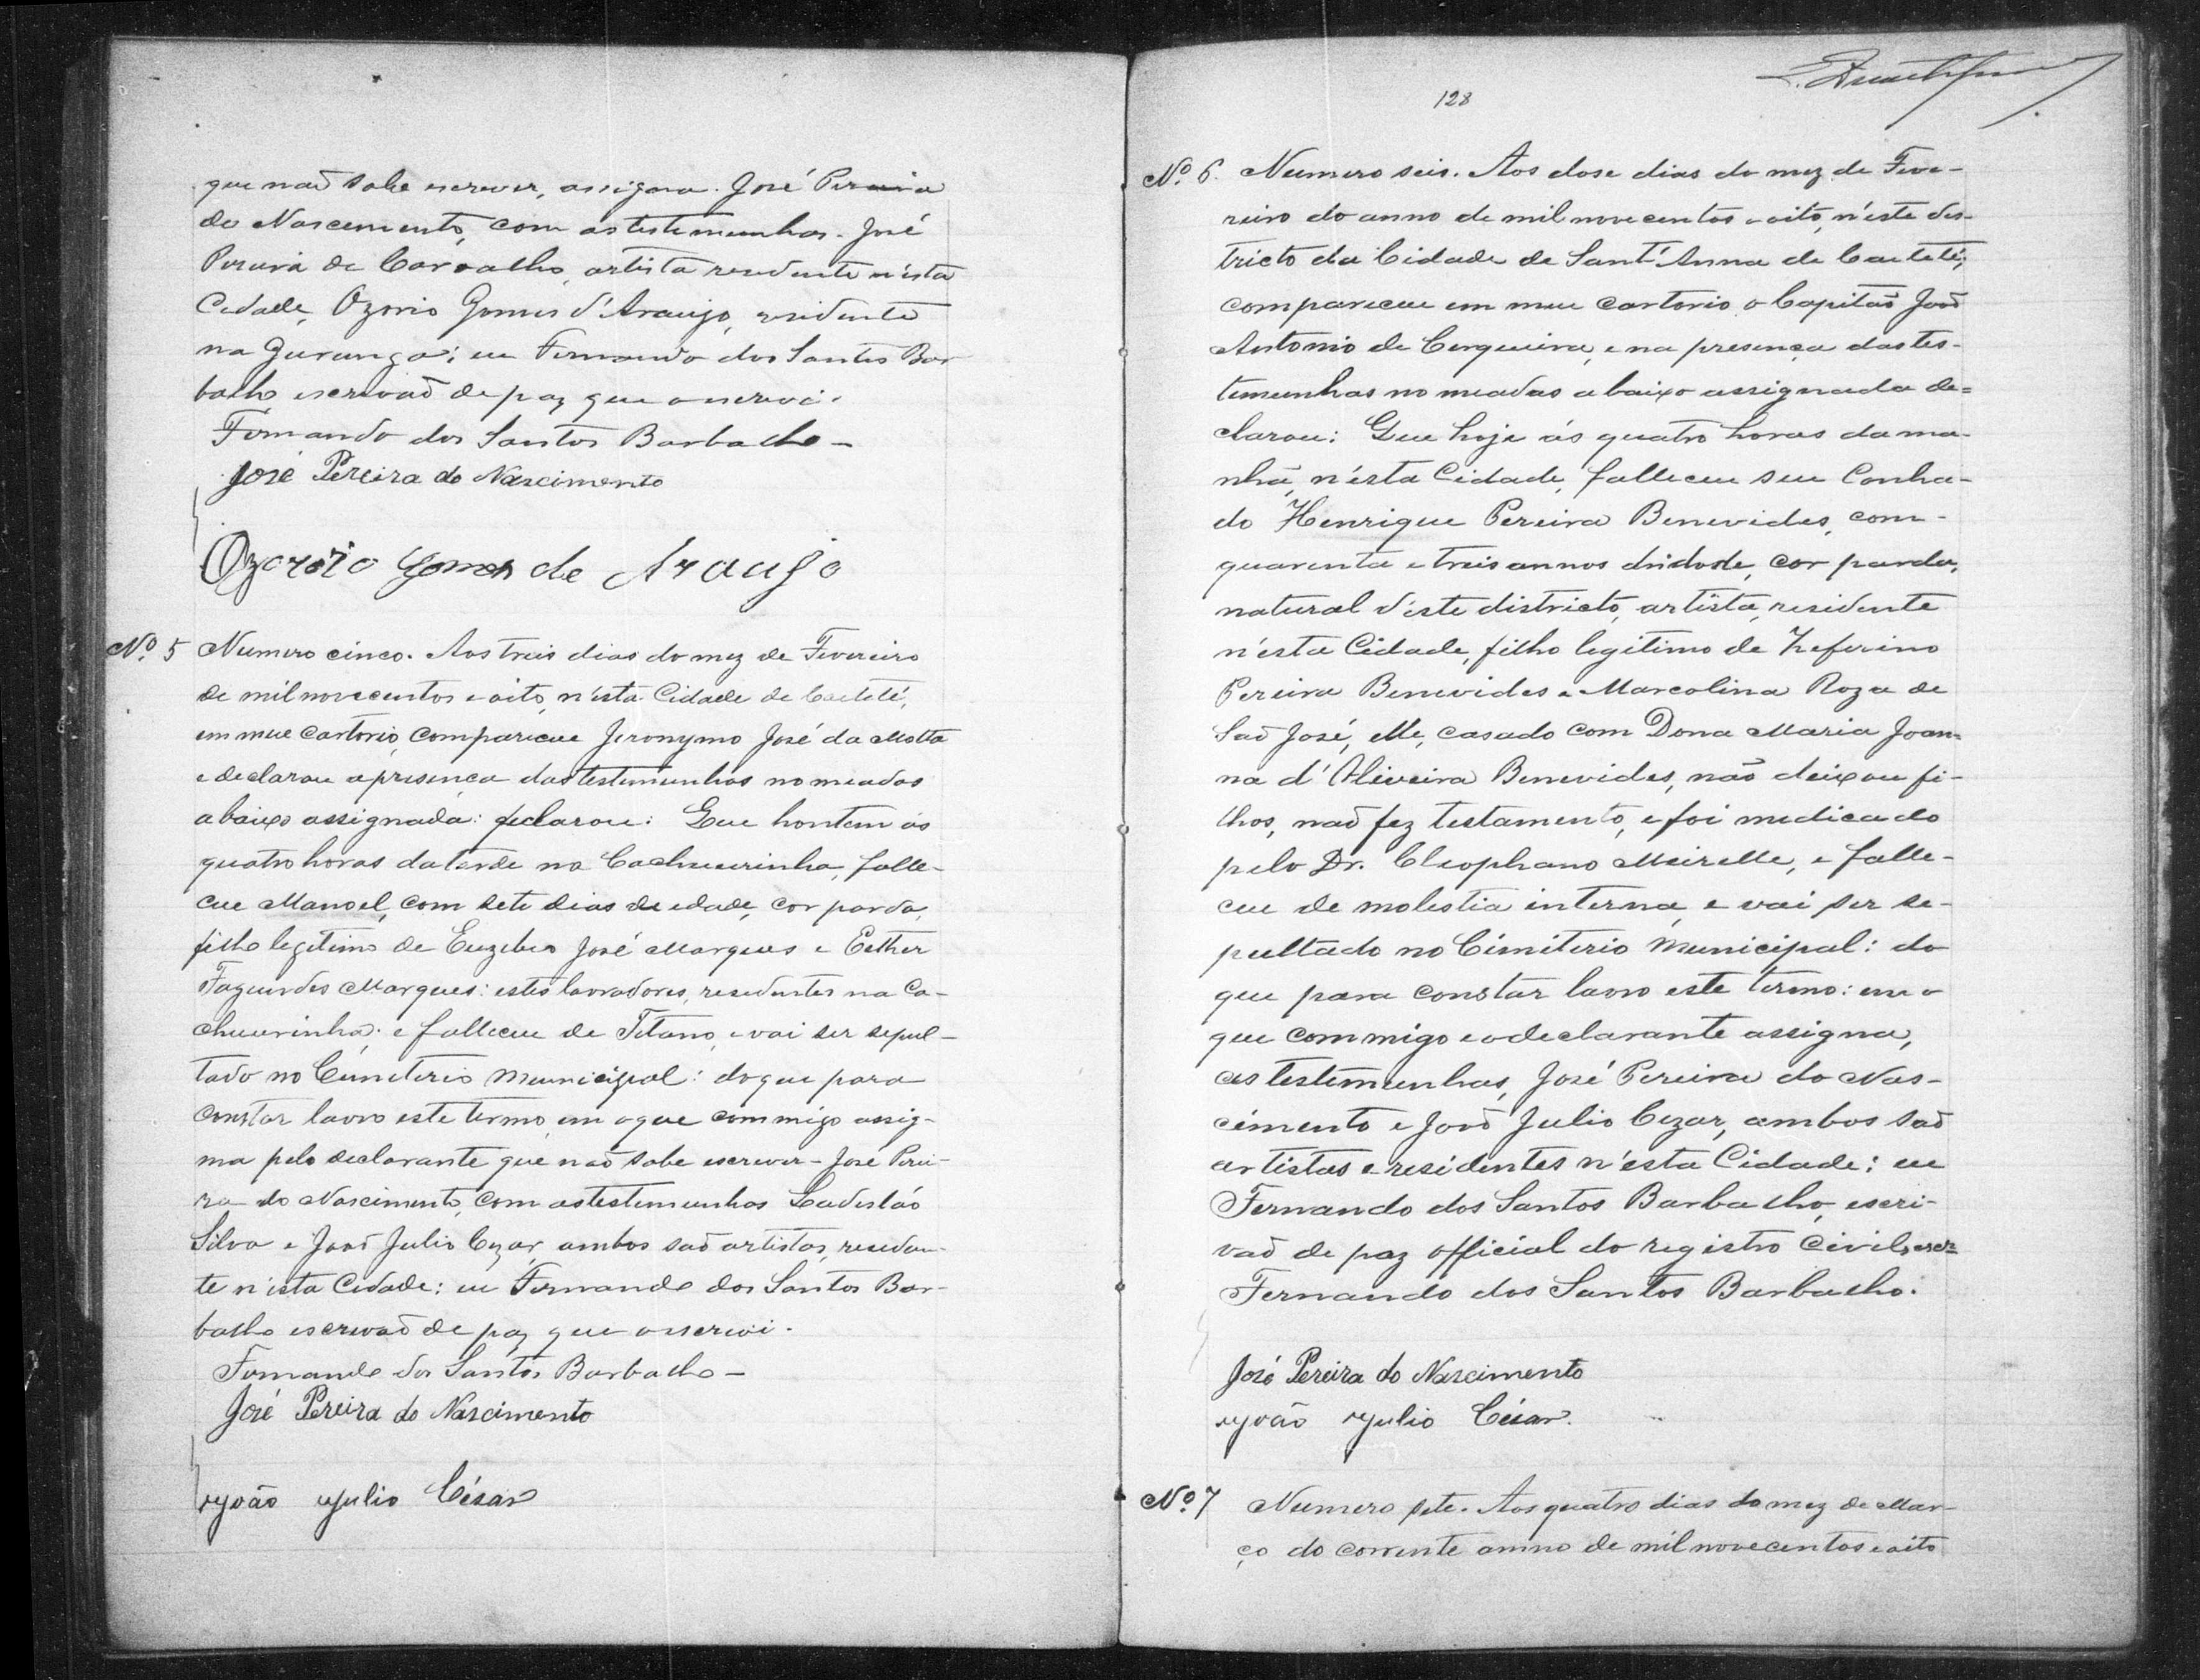 que naõ sabe escrever, assigna. José Pereira
do Nascemento, com as testemunhas. José
Pereira de Carvalho, artista residente n'esta
Cidade, Ozorio Gomes d'Araujo, residente
na Gurunga; eu Fernando dos Santos Bar
balho escrivaõ de paz que o escrevi.
Fernando dos Santos Barbalho -
José Pereira do Nascimento
Ozorio Gomes de Araujo
Nº 5 Numero cinco. Aos treis dias do mez de Fevereiro
de mil novecentos e oito, n'esta Cidade de Caeteté,
em meu Cartorio, compareceu Jeronymo José da Motta
e declarou a presença das testemunhas nomeadas
abaixo assignada: declarou: Que hontem ás
quatro horas da tarde na Cachueirinha, falle-
ceu Manoel, com sete dias de edade, cor parda,
filho legitimo de Euzebio José Marques e Esther
Fagundes Marques: estes lavradores, residentes na Ca-
chueirinha; e falleceu de Tetano, e vai ser sepul-
tado no Cimeterio Municipal: do que para
constar lavro este termo, em o que commigo assig-
na pelo declarante que naõ sabe escrever - José Perei-
ra do Nascimento, com as testemunhas Ladisláo
Silva e Joaõ Julio Cezar, ambos saõ artistas, residen-
te n'esta Cidade; eu Fernando dos Santos Bar-
balho escrivaõ de paz que o escrevi.
Fernando dos Santos Barbalho -
José Pereira do Nascimento
João Julio César
128
Nº 6. Numero seis. Aos dose dias do mez de Feve-
reiro do anno de mil novecentos e oito, n'este des-
tricto da Cidade de Sant'Anna de Caeteté,
compareceu em meu cartorio o Capitaõ Joaõ
Antonio de Cerqueira, e na presença das tes-
temunhas nomeadas abaixo assignada de=
clarou: Que hoje ás quatro horas da ma-
nhã, n'esta Cidade, falleceu seu Cunha-
do Henrique Pereira Benevides, com-
quarenta e treis annos d'idade, cor parda,
natural d'este districto, artista, residente
n'esta Cidade, filho legitimo de Zeferino
Pereira Benevides e Marcolina Roza de
Saõ José, elle, casado com Dona Maria Joan=
na d'Oliveira Benevides, não deixou fi-
lhos, naõ fez testamento, e foi medicado
pelo Dr. Cleophano Meirelle, e falle-
ceu de molestia interna, e vai ser se-
pultado no Cimiterio Municipal: do
que para constar lavro este termo: em o
que commigo e o declarante assigna,
as testemunhas, José Pereira do Nas-
cimento e Joaõ Julio Cezar, ambos saõ
artistas e residentes n'esta Cidade; eu
Fernando dos Santos Barbalho, escri-
vaõ de paz official do registro Civil,
Fernando dos Santos Barbalho.
José Pereira do Nascimento
João Julio César.
Nº 7 Numero sete. Aos quatro dias do mez de Mar-
ço do corrente anno de mil novecentos e oito